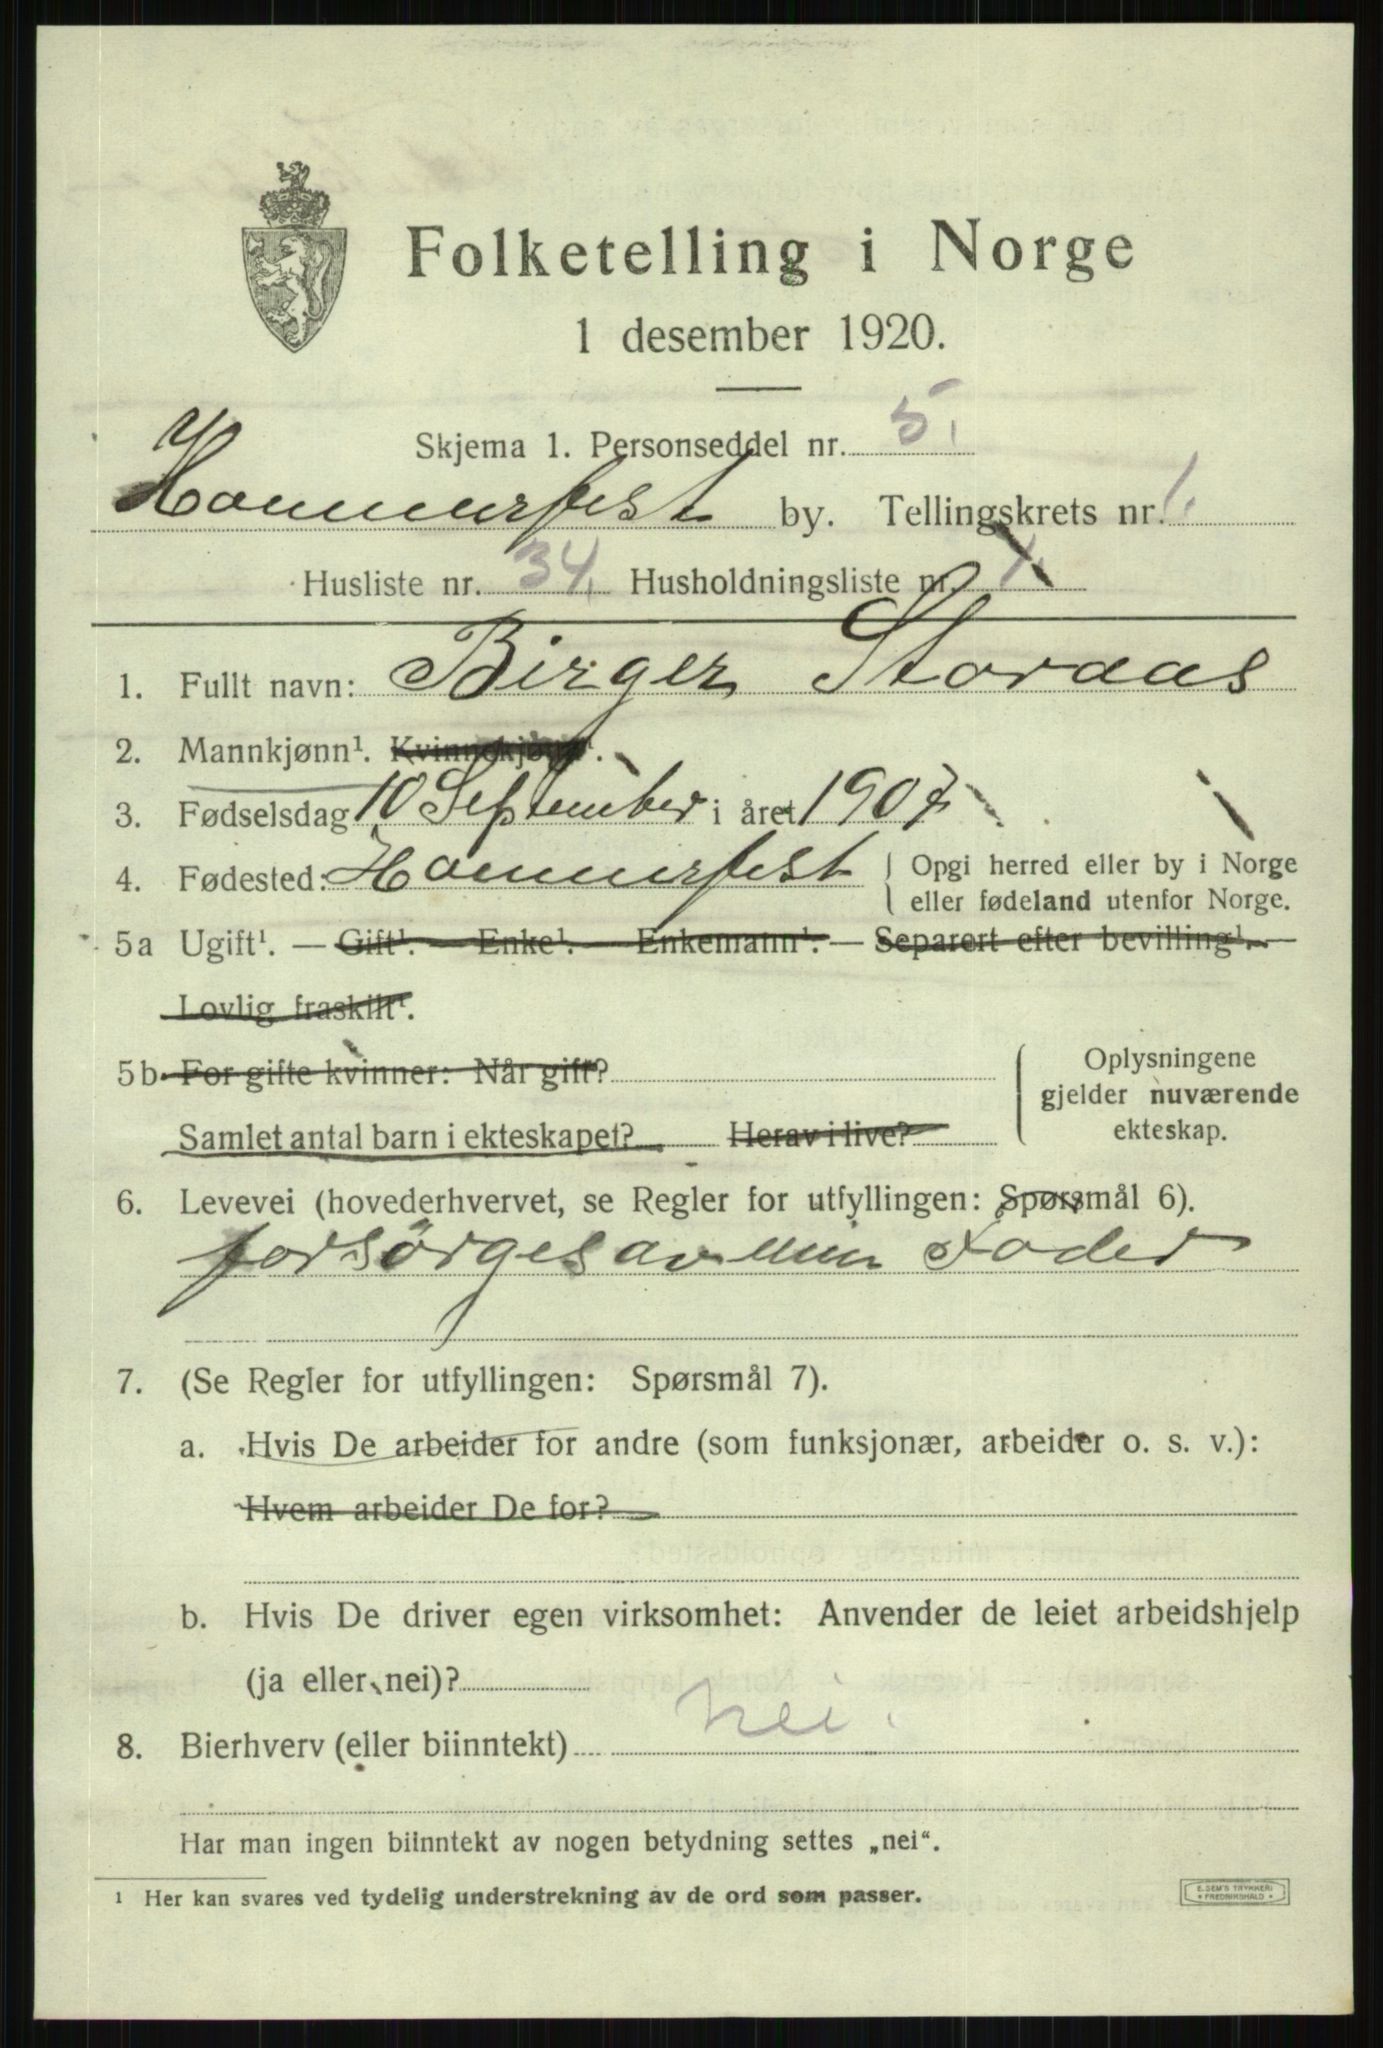 Folketelling i Norge
1 desember 1920.
Skjema 1. Personseddel nr. 5.
Hammerfest by. Tellingskrets nr. 1.
Husliste nr. 34. Husholdningsliste nr.
1. Fullt navn: Birger Storaas
2. Mannkjønn¹. Kvinnekjønn¹.
3. Fødselsdag 10 September i året 1907.
4. Fødested: Hammerfest { Opgi herred eller by i Norge
eller fødeland utenfor Norge.
5a Ugift¹. — Gift¹. — Enke¹. Enkemann¹. — Separert efter bevilling¹. —
Lovlig fraskilt¹.
5b For gifte kvinner: Når gift?
Samlet antal barn i ekteskapet? Herav i live?
Oplysningene
gjelder nuværende
ekteskap.
6. Levevei (hovederhvervet, se Regler for utfyllingen: Spørsmål 6).
forsørges av min Fader
7. (Se Regler for utfyllingen: Spørsmål 7).
a. Hvis De arbeider for andre (som funksjonær, arbeider o. s. v.):
Hvem arbeider De for?
b. Hvis De driver egen virksomhet: Anvender de leiet arbeidshjelp
(ja eller nei)?
8. Bierhverv (eller biinntekt) nei.
Har man ingen biinntekt av nogen betydning settes „nei“.
¹ Her kan svares ved tydelig understrekning av de ord som passer.
E. SEM'S TRYKKERI
FREDRIKSHALD